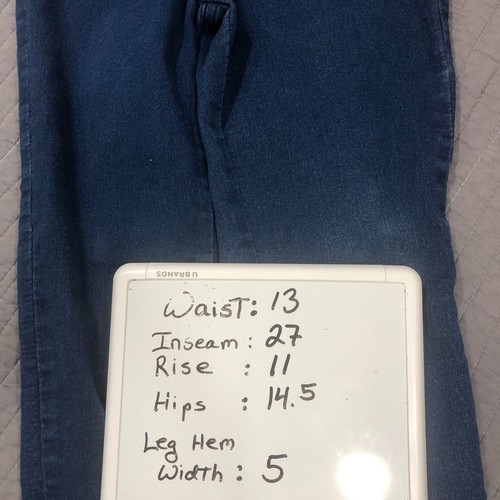 U BRANDS
Waist: 13
Inseam: 27
Rise : 11
Hips : 14.5
Leg Hem
Width : 5